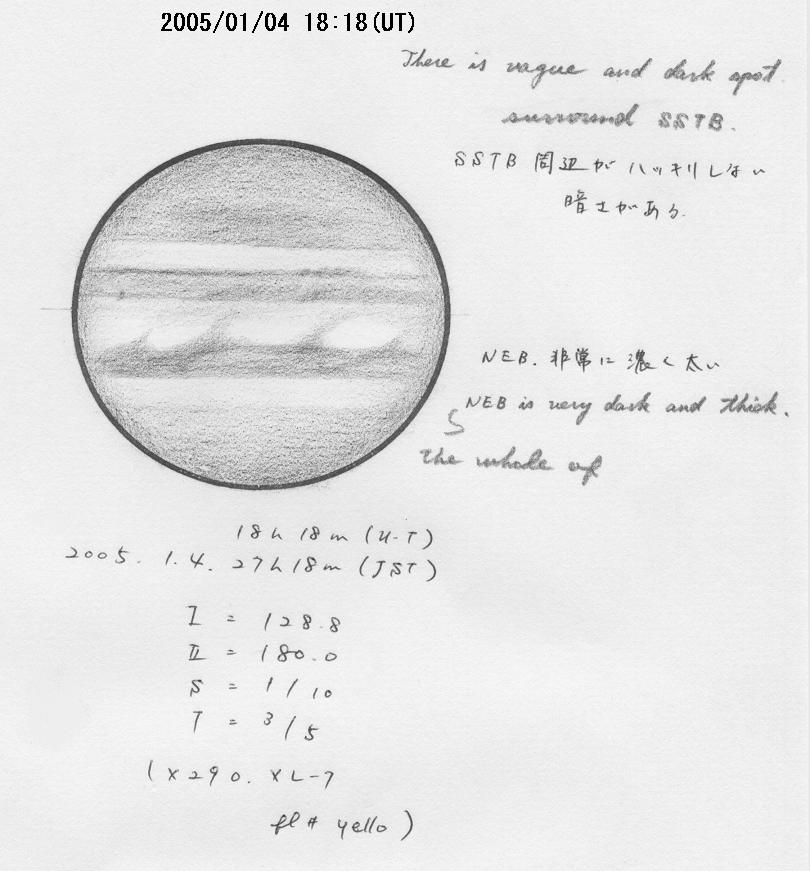 2005/01/04 18:18(UT)
There is vague and dark spot.
surround SSTB.
SSTB 周辺がハッキリしない
暗さがある.
NEB. 非常に濃く太い
NEB is very dark and thick.
the whole of
18h 18m (U.T)
2005. 1.4. 27h18m (JST)
I = 128.8
II = 180.0
S = 1/10
T = 3/5
(×290. XL-7
fl# yello)